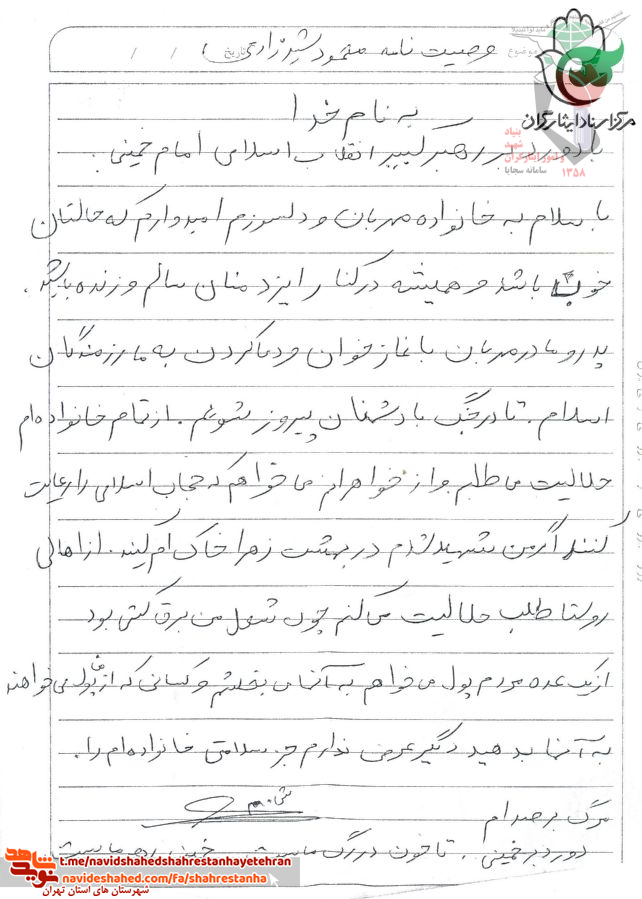 وصیت نامه محمود شیرزادی
تاریخ / /
موضوع
مرکز اسناد ایثارگران
بنیاد
شهید
و امور ایثارگران
سامانه سجایا
۱۳۵۸
به نام خدا
با درود بر رهبر کبیر انقلاب اسلامی امام خمینی.
با سلام به خانواده مهربان و دلسوزم امیدوارم که حالتان
خوب باشد و همیشه در کنار ایزد منان سالم و زنده باشید.
پدر و مادر مهربان با نماز خوان و دعا کردن به ما رزمندگان
اسلام. تا در جنگ با دشمنان پیروز شویم. از تمام خانواده ام
حلالیت می طلبم و از خواهرانم می خواهم که حجاب اسلامی را رعایت
کنند اگر من شهید شدم در بهشت زهرا خاک ام کنید. از اهالی
روستا طلب حلالیت می کنم چون شغل من برق کشی بود
از یک عده مردم پول می خواهم به آنها می بخشم و کسانی که از ما پول می خواهند
به آنها بدهید دیگر عرضی ندارم جز سلامتی خانواده ام را.
مرگ بر صدام
درود بر خمینی. تا خون در رگ ماست خمینی رهبر ماست
t.me/navidshahedshahrestanhayetehran
navideshahed.com/fa/shahrestanha
نوید شاهد
شهرستان های استان تهران